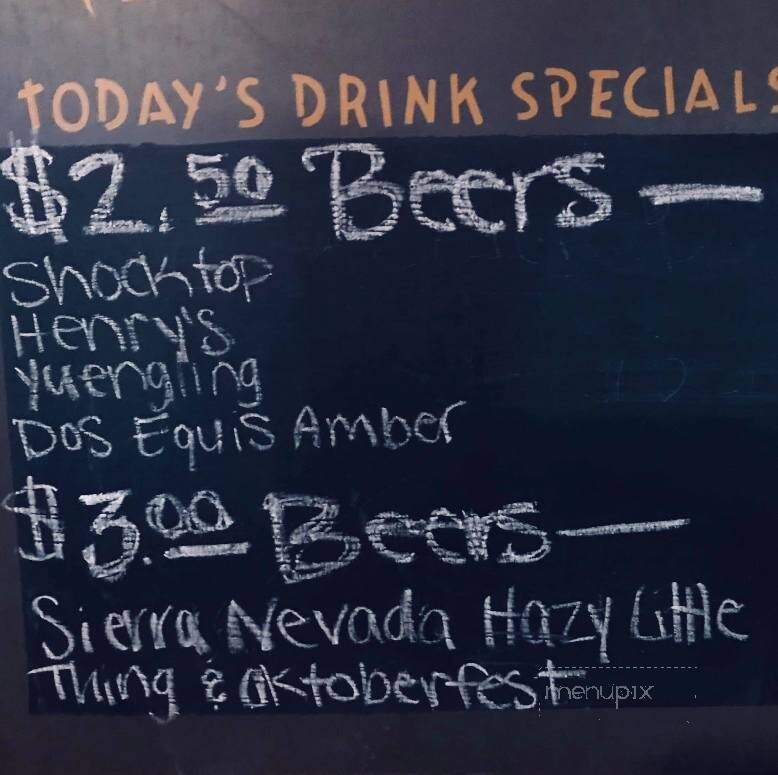 TODAY'S DRINK SPECIALS
$2.50 Beers —
Shocktop
Henry's
Yuengling
Dos Equis Amber
$3.00 Beers —
Sierra Nevada Hazy Little
Thing & Oktoberfest
menupix